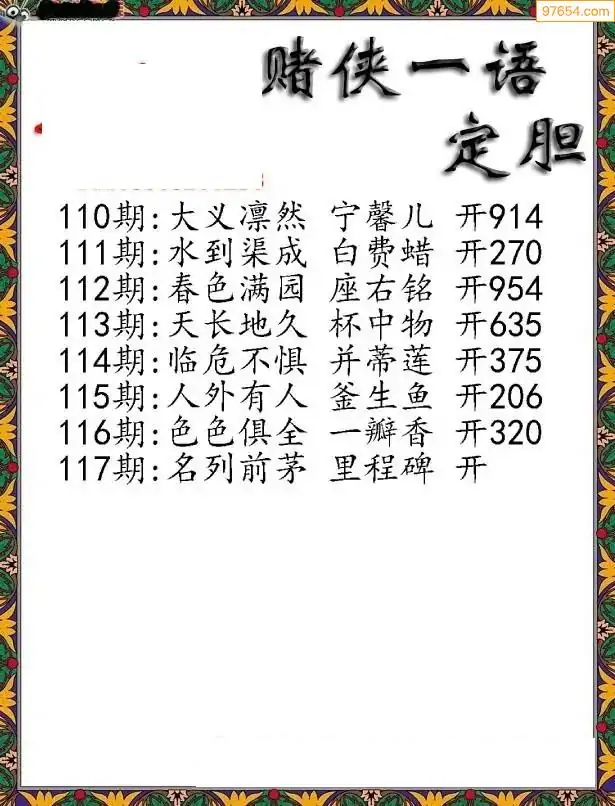 97654.com
赌侠一语
定胆
110期:大义凛然 宁馨儿 开914
111期:水到渠成 白费蜡 开270
112期:春色满园 座右铭 开954
113期:天长地久 杯中物 开635
114期:临危不惧 并蒂莲 开375
115期:人外有人 釜生鱼 开206
116期:色色俱全 一瓣香 开320
117期:名列前茅 里程碑 开